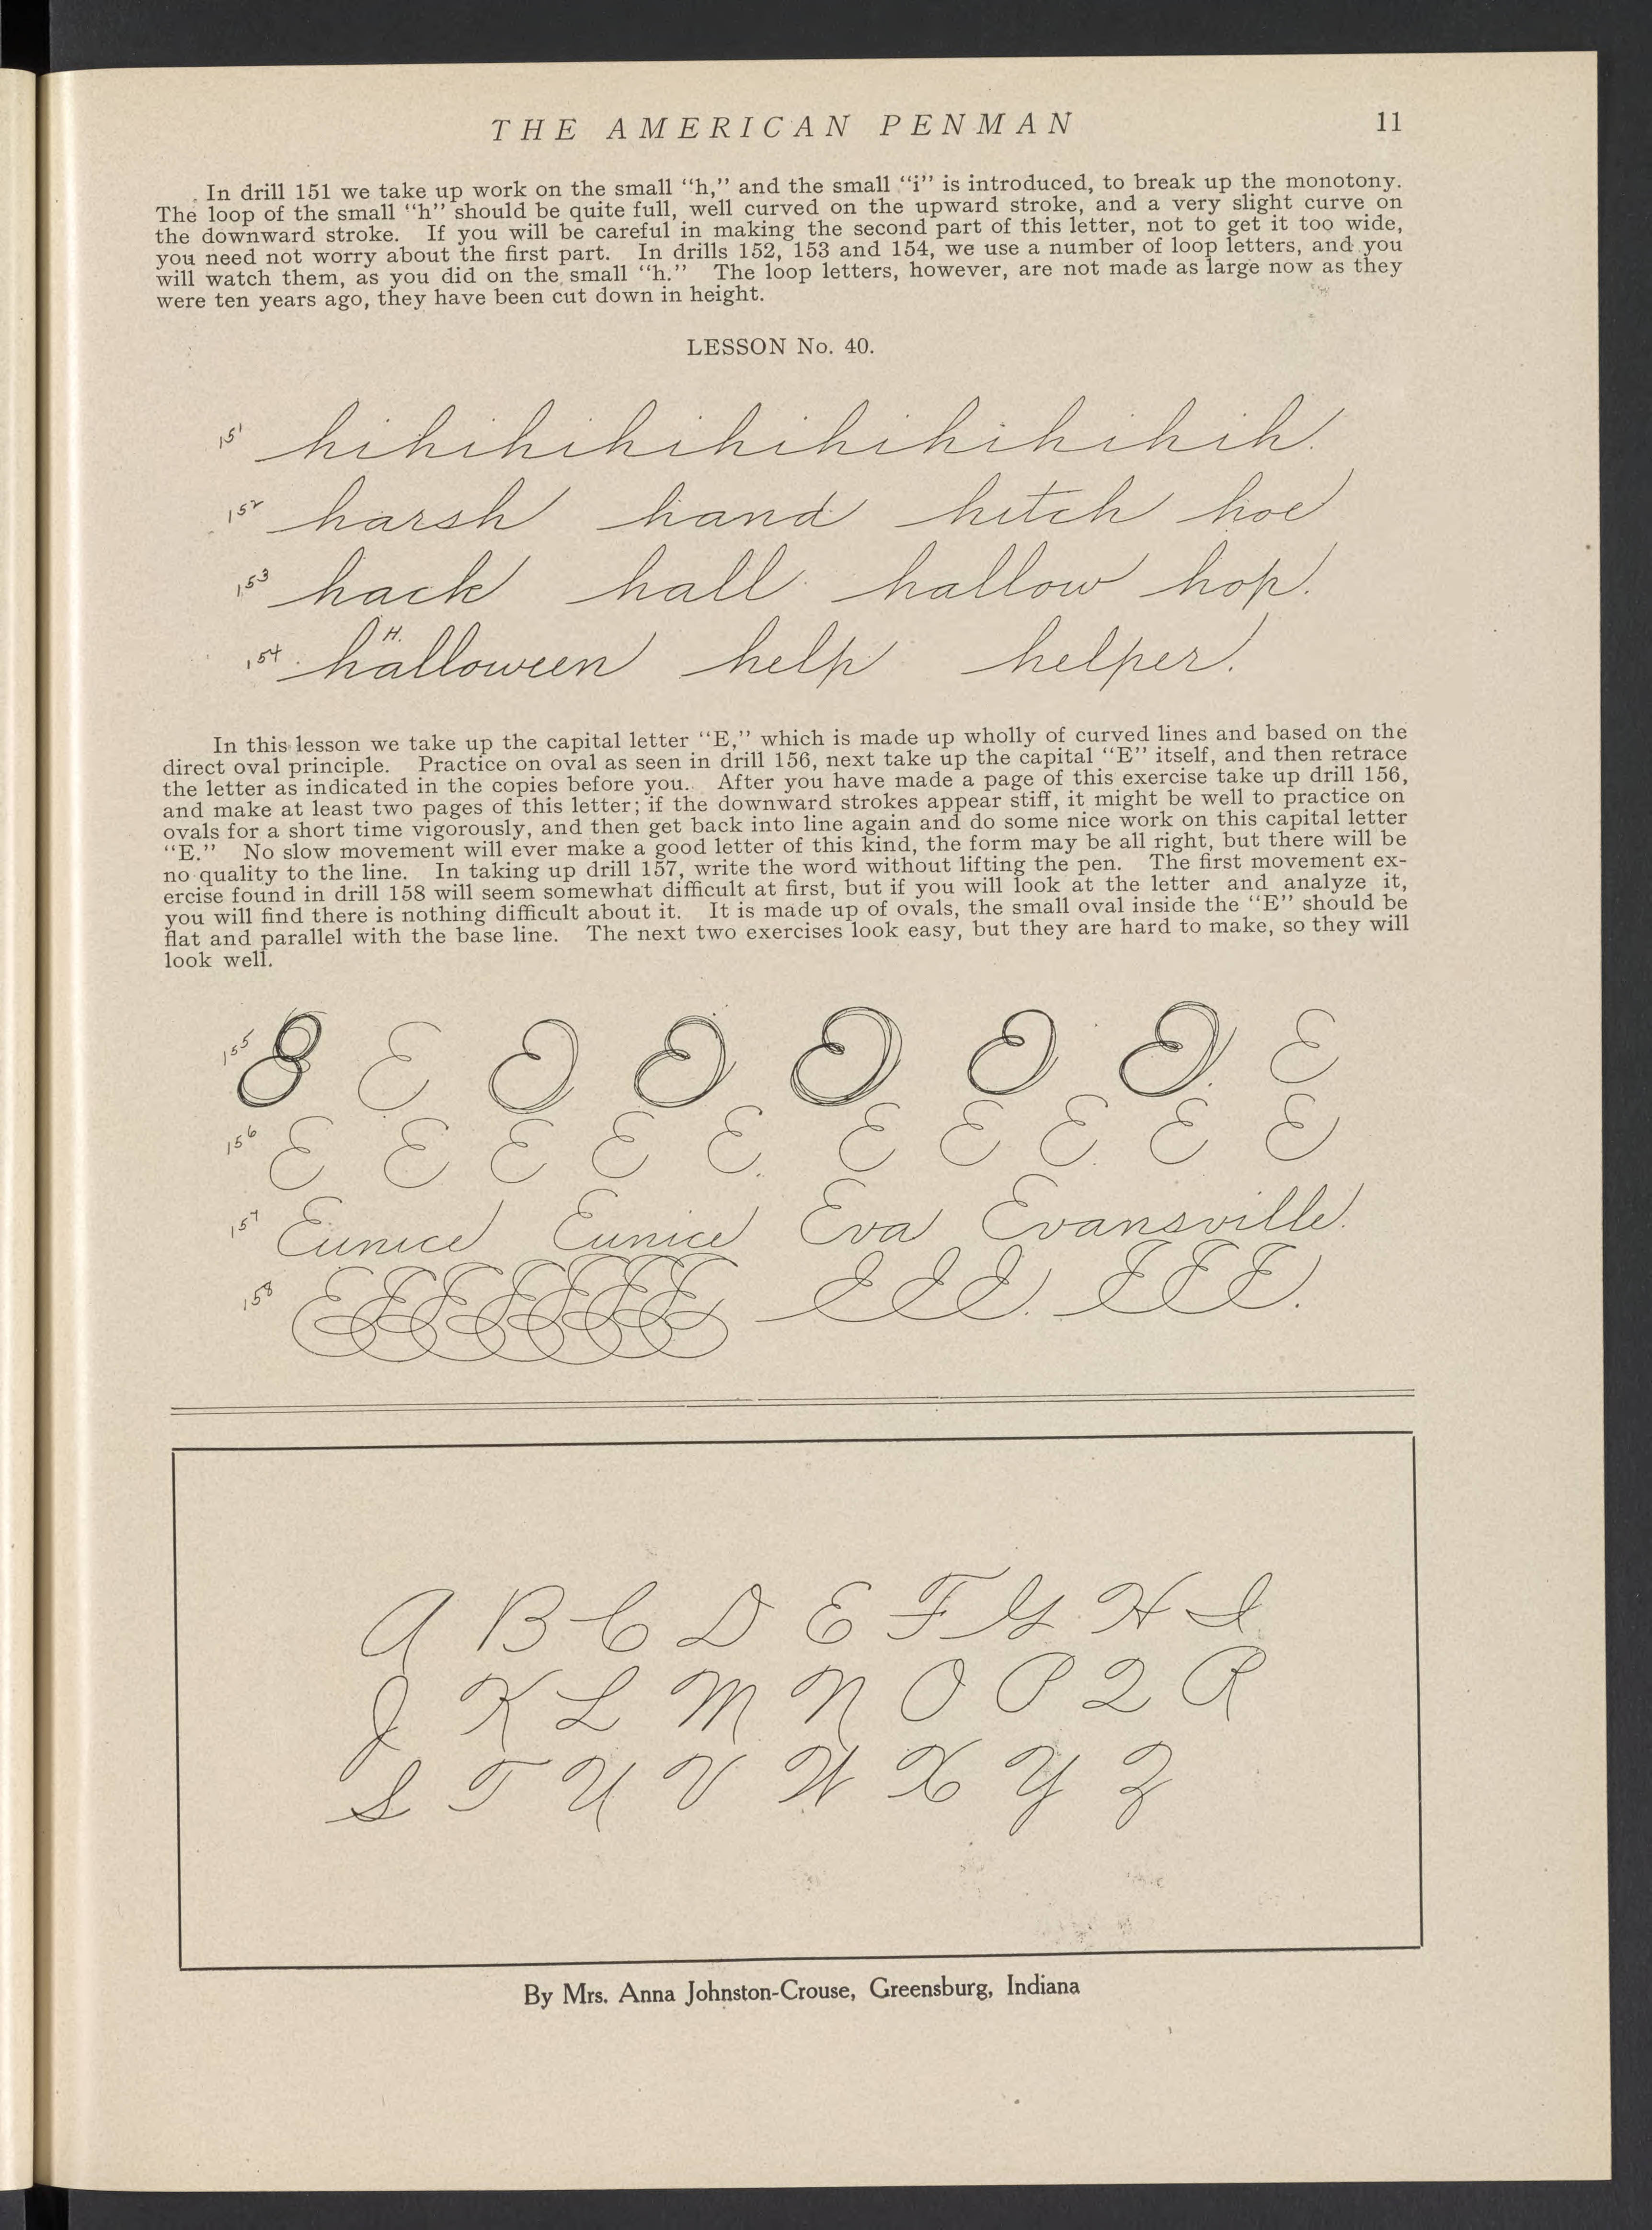 THE AMERICAN PENMAN 11
In drill 151 we take up work on the small “h,” and the small “i” is introduced, to break up the monotony.
The loop of the small “h” should be quite full, well curved on the upward stroke, and a very slight curve on
the downward stroke. If you will be careful in making the second part of this letter, not to get it too wide,
you need not worry about the first part. In drills 152, 153 and 154, we use a number of loop letters, and you
will watch them, as you did on the small “h.” The loop letters, however, are not made as large now as they
were ten years ago, they have been cut down in height.
LESSON No. 40.
151 hihihihihihihihihih.
152 harsh hand hitch hoe
153 hack hall hallow hop.
H.
154 halloween help helper.
In this lesson we take up the capital letter “E,” which is made up wholly of curved lines and based on the
direct oval principle. Practice on oval as seen in drill 156, next take up the capital “E” itself, and then retrace
the letter as indicated in the copies before you. After you have made a page of this exercise take up drill 156,
and make at least two pages of this letter; if the downward strokes appear stiff, it might be well to practice on
ovals for a short time vigorously, and then get back into line again and do some nice work on this capital letter
“E.” No slow movement will ever make a good letter of this kind, the form may be all right, but there will be
no quality to the line. In taking up drill 157, write the word without lifting the pen. The first movement ex-
ercise found in drill 158 will seem somewhat difficult at first, but if you will look at the letter and analyze it,
you will find there is nothing difficult about it. It is made up of ovals, the small oval inside the “E” should be
flat and parallel with the base line. The next two exercises look easy, but they are hard to make, so they will
look well.
155 E E E E E E E E
156 E E E E E. E E E. E E
157 Eunice Eunice Eva Evansville.
158 EEEEEEE EEE. EEE.
A B C D E F G H I
J K L M N O P Q R
S T U V W X Y Z
By Mrs. Anna Johnston-Crouse, Greensburg, Indiana